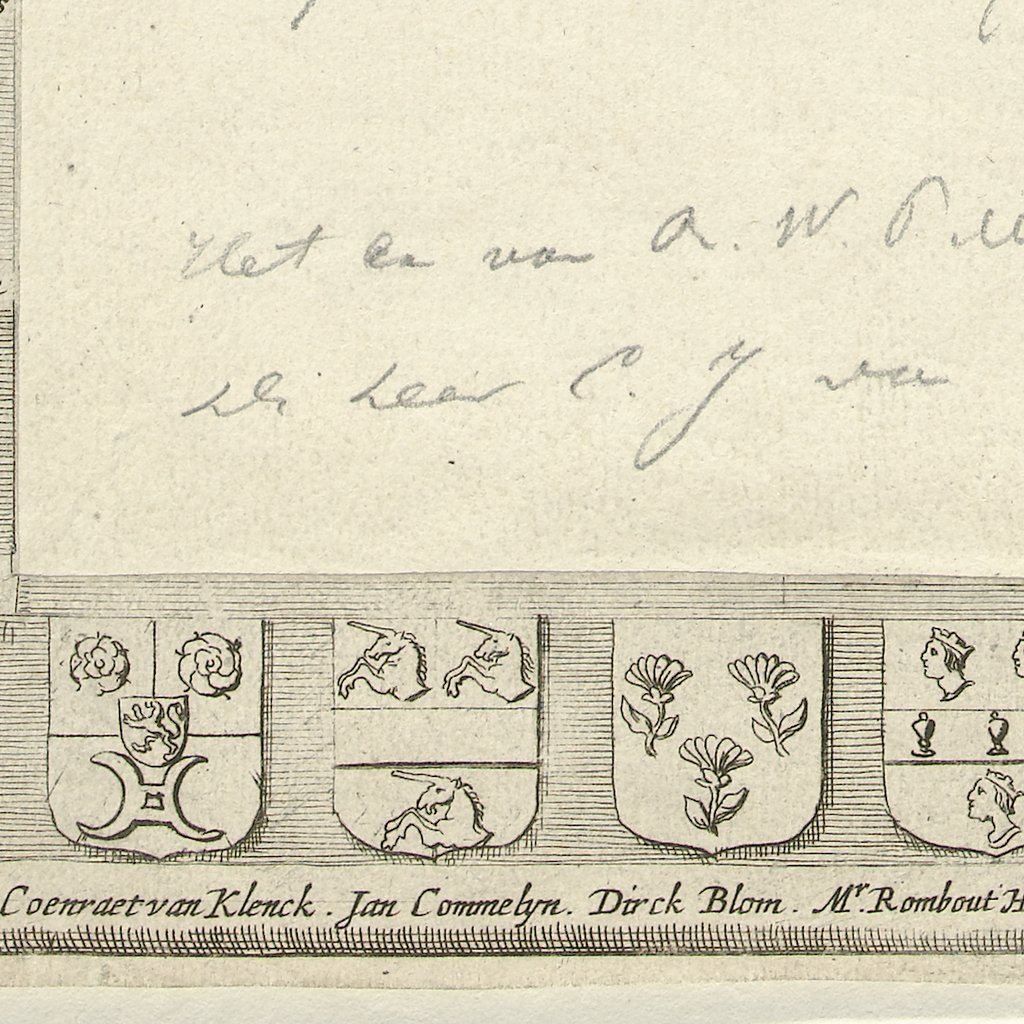 Het van A. W. P.
De Heer C. J van
Coenraet van Klenck. Jan Commelyn. Dirck Blom. Mr. Rombout H